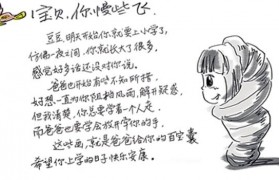 宝贝,你慢些飞.
豆豆,明天开始你就要上小学了,
仿佛一夜之间,你就长大了很多.
感觉好多话还没对你说.
爸爸也开始有些不知所措.
好想一直为你阻挡风雨,解开疑惑.
但我清楚,你总要学着一个人走,
而爸爸也要学会放开你的手.
这些画,就是爸爸给你的百宝囊
希望你上学的日子快乐安康.